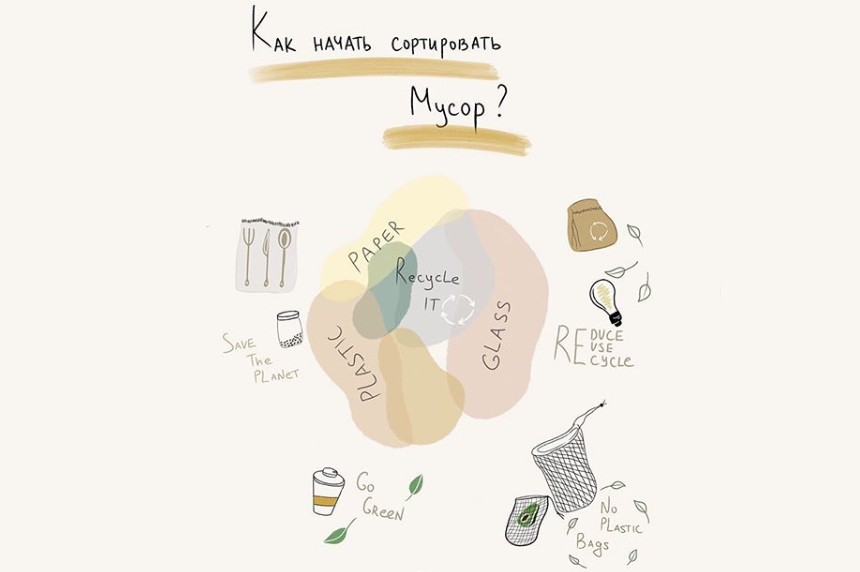 Как начать сортировать
Мусор?
PAPER
Recycle
IT
PLASTIC
GLASS
Save
The
Planet
REDUCE
USE
CYCLE
Go
Green
No
Plastic
Bags